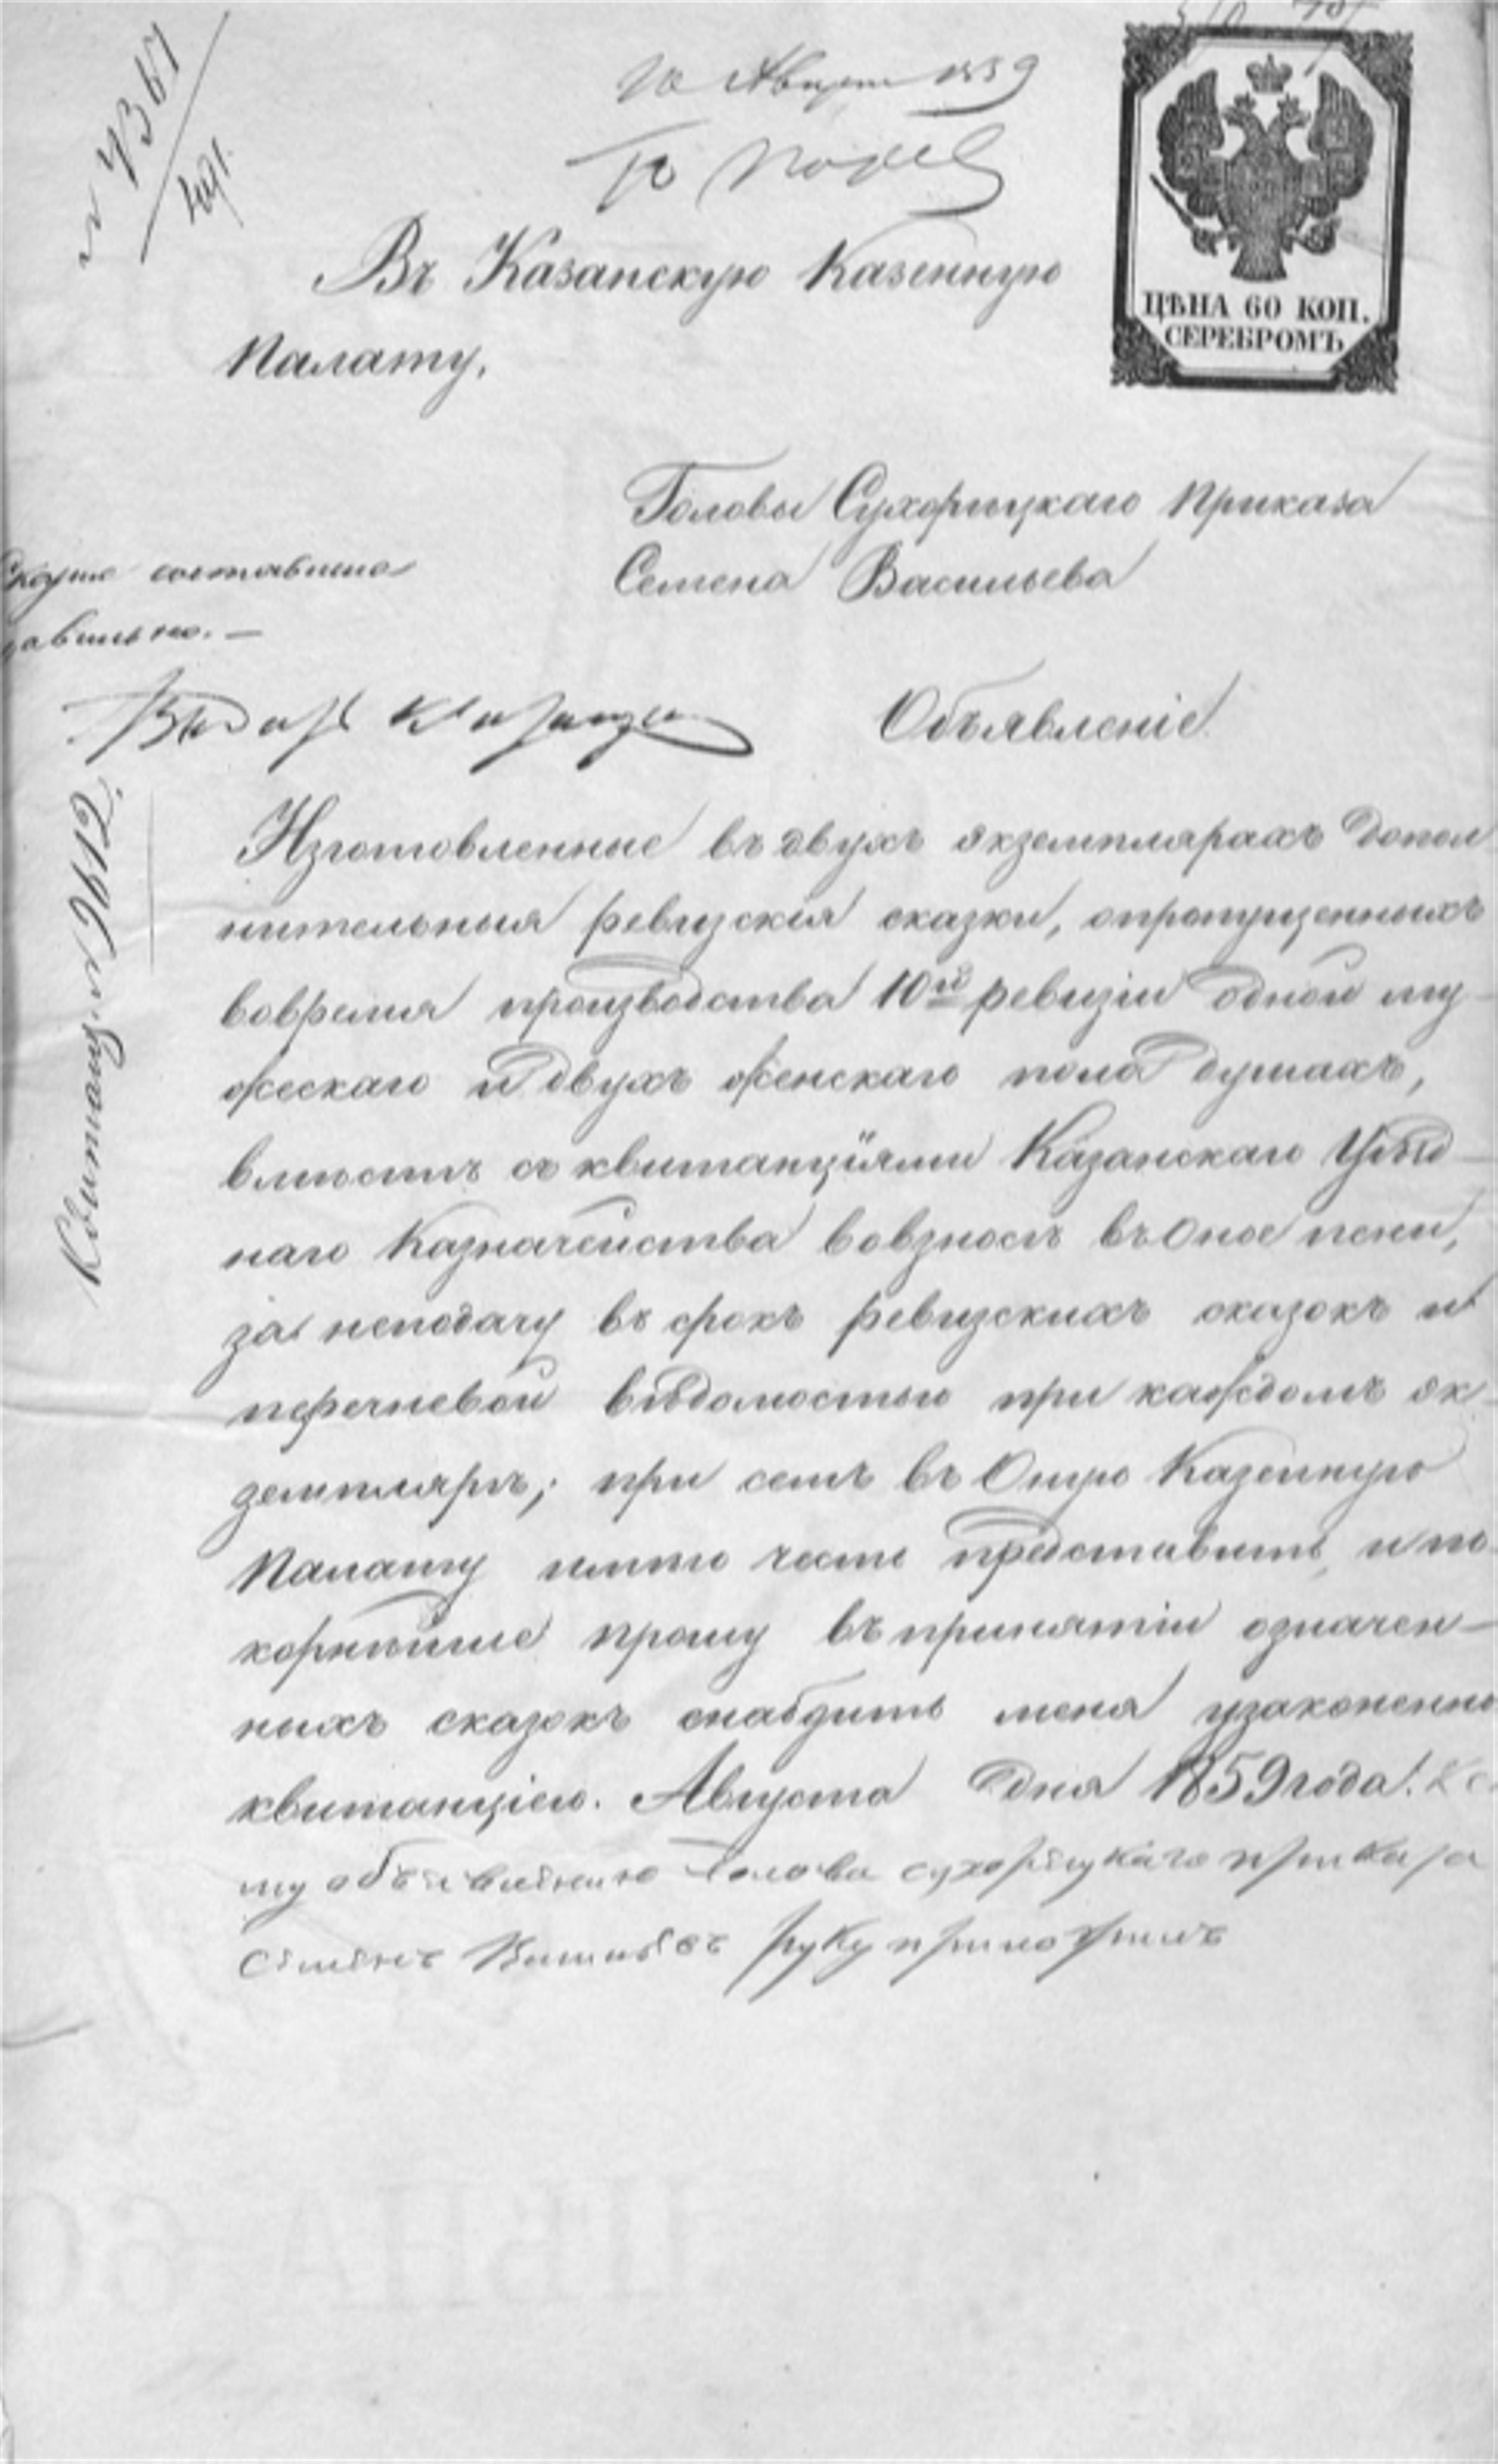 № 4361
10 Августа 1859
Въ Казанскую Казенную
Палату.
ЦѢНА 60 КОП.
СЕРЕБРОМЪ
Головы Сухорѣцкаго Приказа
Семена Васильева
составлена
Объявленіе
Квитанц. № 9612.
Изготовленные въ двухъ экземплярахъ допол
нительныя ревизскія сказки, опропущенныхъ
вовремя производства 10й ревизіи одной му-
жескаго и двухъ женскаго пола душахъ,
вмѣстѣ съ квитанціями Казанскаго Уѣзд-
наго Казначейства вовзносѣ въ оное пени,
за неподачу въ срокъ ревизскихъ сказокъ и
перечневой вѣдомостью при каждомъ эк-
земплярѣ; при семъ въ Оную Казенную
Палату имѣю честь представить, и по-
корнѣйше прошу въ принятіи означен-
ныхъ сказокъ снабдить меня узаконенно
квитанціею. Августа дня 1859 года. К се
му объевленію Голова сухорецкаго приказа
Семенъ Васильевъ руку приложилъ